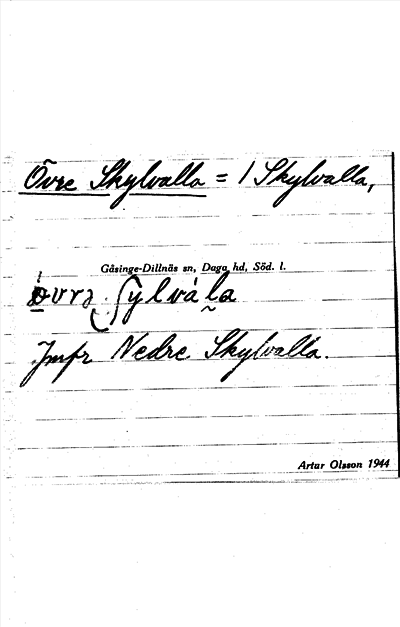 Övre Skylvalla = 1 Skylvalla,
Gåsinge-Dillnäs sn, Daga hd, Söd. l.
Jmfr Nedre Skylvalla.
Artur Olsson 1944